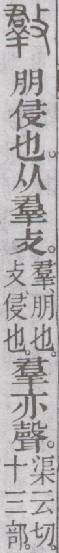 𣀄
朋侵也。从羣攴。
羣朋也。
攴侵也。
羣亦聲。
渠云切。
十三部。